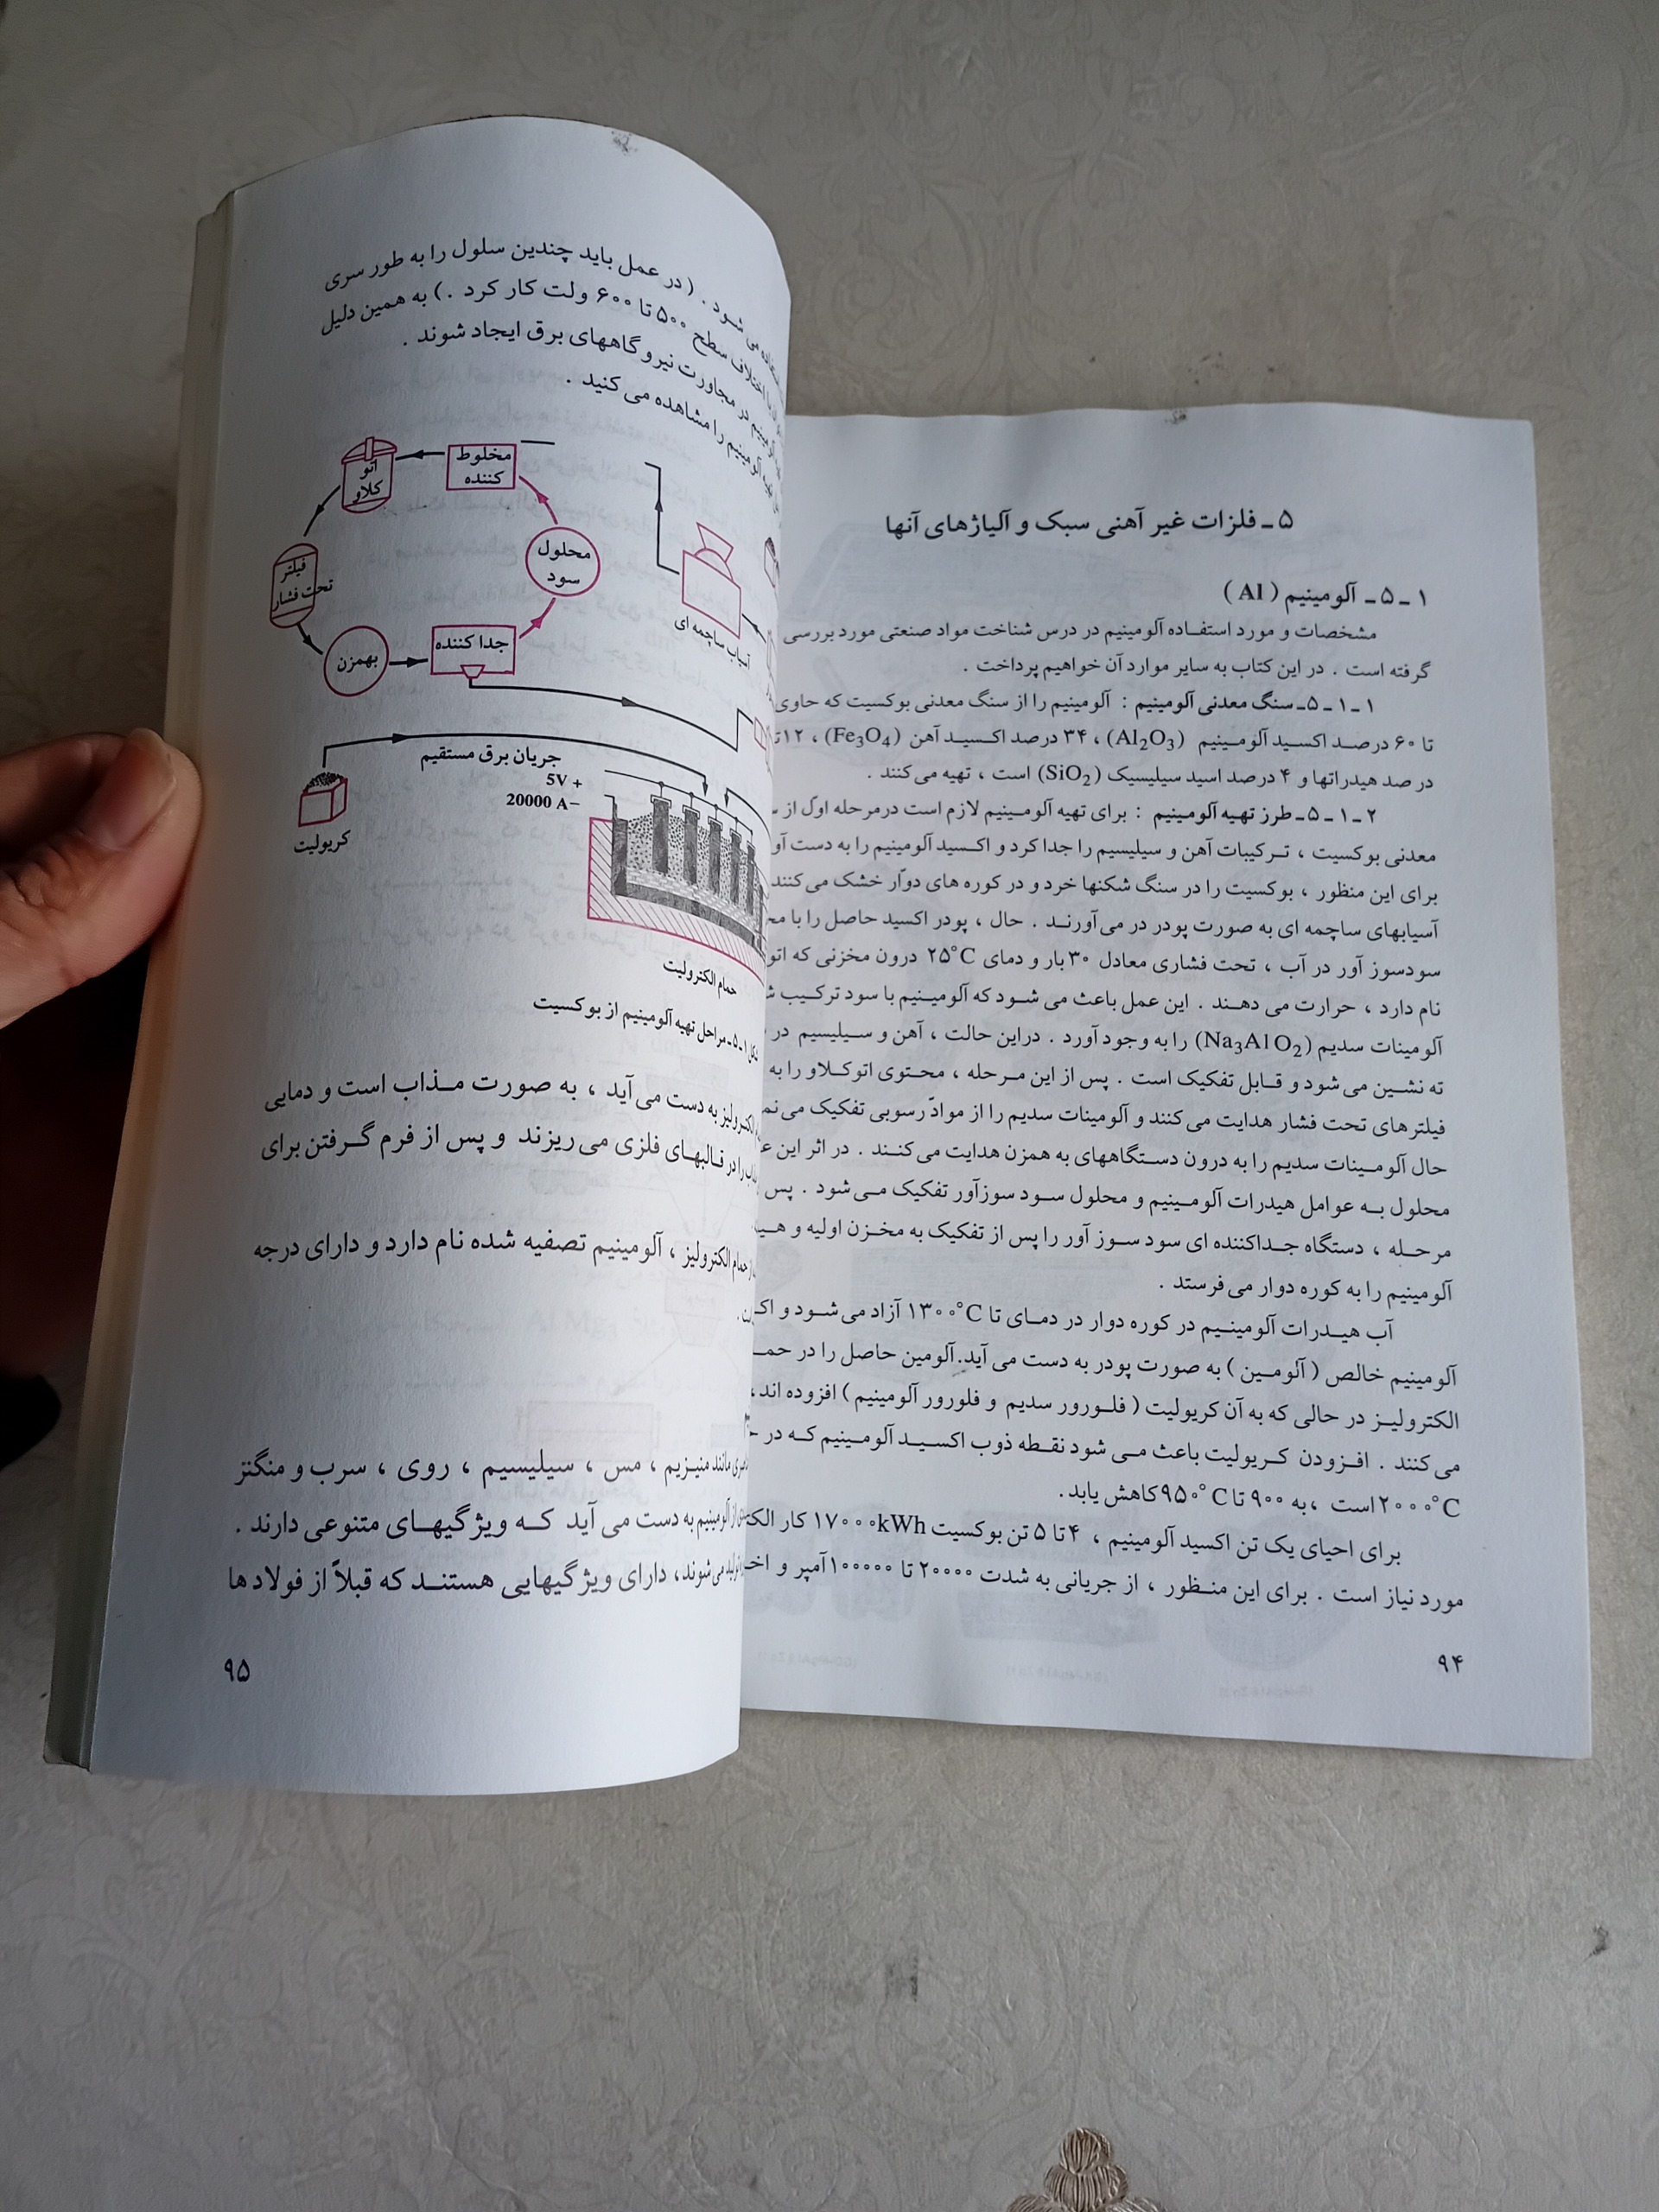 ۵ ـ فلزات غیر آهنی سبک و آلیاژهای آنها
۱ ـ ۵ ـ آلومینیم ( Al )
مشخصات و مورد استفـاده آلومینیم در درس شناخت مواد صنعتی مورد بررسی
گرفته است . در این کتاب به سایر موارد آن خواهیم پرداخت .
۱ ـ ۱ ـ ۵ ـ سنگ معدنی آلومینیم : آلومینیم را از سنگ معدنی بوکسیت که حاوی
تا ۶۰ درصـد اکسـید آلومـینیم (Al2O3) ، ۳۴ درصد اکـسیـد آهن (Fe3O4) ، ۱۲
در صد هیدراتها و ۴ درصد اسید سیلیسیک (SiO2) است ، تهیه می کنند .
۲ ـ ۱ ـ ۵ ـ طرز تهیه آلومـینیم : برای تهیه آلومـینیم لازم است درمرحله اوّل از
معدنی بوکسیت ، تـرکیبات آهن و سیلیسیم را جدا کرد و اکـسید آلومینیم را به دست
برای این منظور ، بوکسیت را در سنگ شکنها خرد و در کوره های دوّار خشک می کنند
آسیابهای ساچمه ای به صورت پودر در می آورنـد . حال ، پودر اکسید حاصل را با
سودسوز آور در آب ، تحت فشاری معادل ۳۰ بار و دمای ۲۵°C درون مخزنی که
نام دارد ، حرارت می دهـند . این عمل باعث می شـود که آلومیـنیم با سود ترکـیب
آلومینات سدیم (Na3AlO2) را به وجود آورد . دراین حالت ، آهن و سـیلیسیم در
ته نشـین می شود و قـابل تفکیک است . پس از این مـرحله ، محـتوی اتوکـلاو را به
فیلترهای تحت فشار هدایت می کنند و آلومینات سدیم را از موادّ رسوبی تفکیک
حال آلومـینات سدیم را به درون دسـتگاههای به همزن هدایت می کـنـند . در اثر این
محلول بـه عوامل هیدرات آلومـینیم و محلول سـود سوزآور تفکیک مـی شود . پس
مرحـله ، دستگاه جـداکننده ای سود سـوز آور را پس از تفکیک به مخـزن اولیه و
آلومینیم را به کوره دوار می فرستد .
آب هیـدرات آلومینـیم در کوره دوار در دمـای تا ۱۳۰۰°C آزاد می شـود و
آلومینیم خالص ( آلومـین ) به صورت پودر به دست می آید. آلومین حاصل را در
الکترولیـز در حالی که به آن کریولیت ( فلـورور سدیم و فلورور آلومینیم ) افزوده اند ،
می کنند . افـزودن کـریولیت باعث مـی شود نقـطه ذوب اکسـیـد آلومـینیم کـه در
۲۰۰۰°C است ، به ۹۰۰ تا ۹۵۰°C کاهش یابد.
برای احیای یک تن اکسید آلومینیم ، ۴ تا ۵ تن بوکسیت ۱۷۰۰۰kWh کار
مورد نیاز است . برای این منـظور ، از جریانی به شدت ۲۰۰۰۰ تا ۱۰۰۰۰۰ آمپر و
۹۴
می شود . ( در عمل باید چندین سلول را به طور سری
اختلاف سطح ۵۰۰ تا ۶۰۰ ولت کار کرد . ) به همین دلیل
در مجاورت نیروگاههای برق ایجاد شوند .
آلومینیم را مشاهده می کنید .
مخلوط
کننده
اتو
کلاو
محلول
سود
فیلتر
تحت فشار
آسیاب ساچمه ای
جدا کننده
بهمزن
جریان برق مستقیم
5V +
20000 A−
کریولیت
حمام الکترولیت
شکل ۱ ـ ۵ ـ مراحل تهیه آلومینیم از بوکسیت
الکترولیز به دست می آید ، به صورت مـذاب است و دمایی
را در قـالبهـای فلزی می ریزند و پس از فرم گـرفتن برای
حمام الکترولیز ، آلومینیم تصفیه شده نام دارد و دارای درجه
مانند منیـزیم ، مس ، سیلیسیم ، روی ، سرب و منگنز
از آلومینیم به دست می آید کـه ویژگیهـای متنوعی دارند .
تولید می شوند ، دارای ویژگیهایی هستنـد که قبلاً از فولادها
۹۵